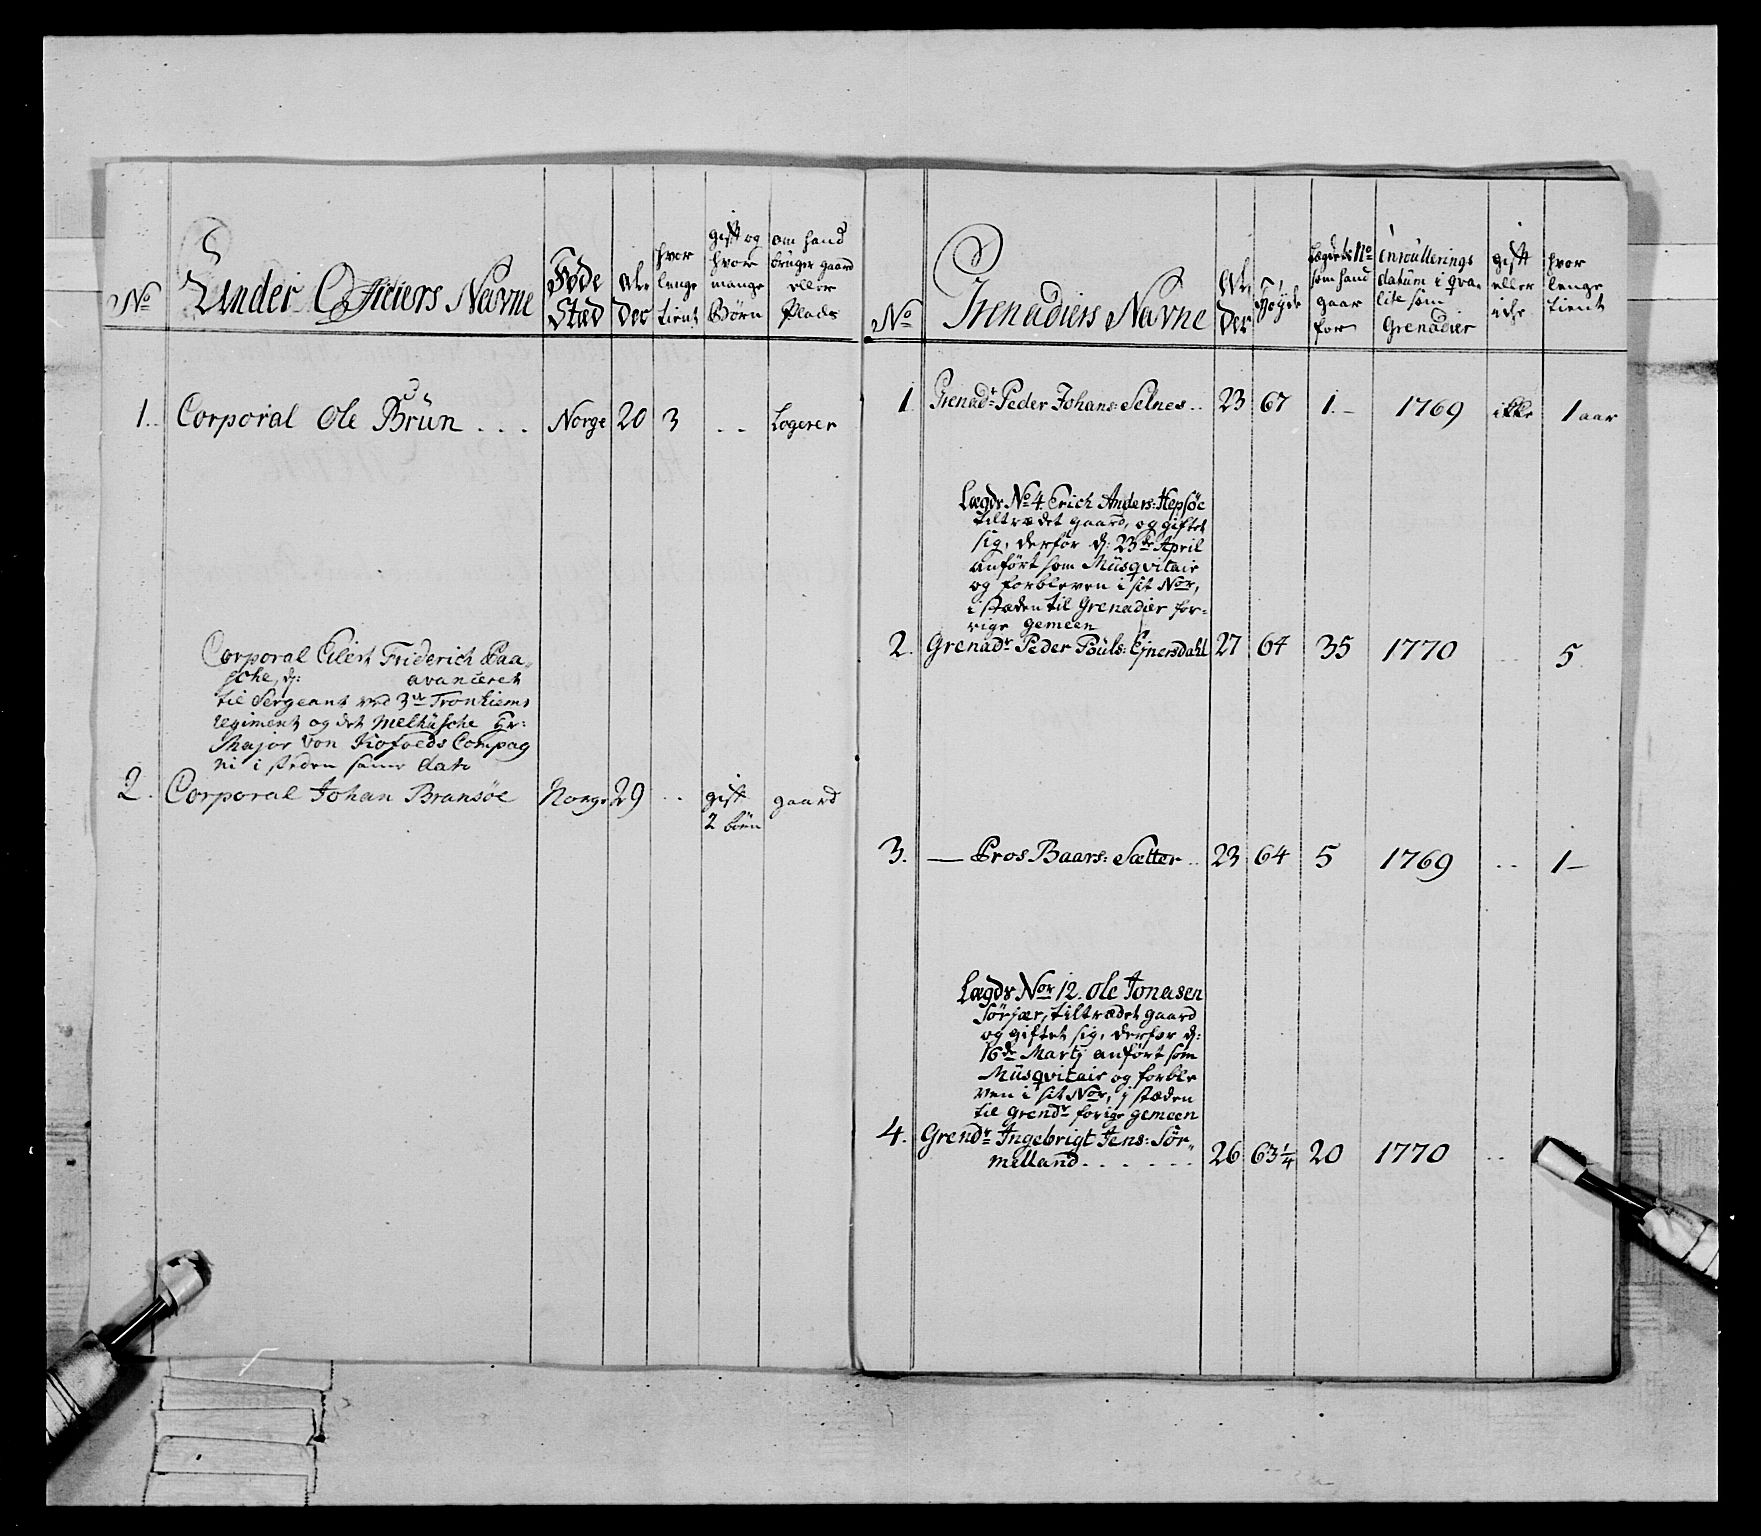 No
Under Officiers Navne
Føde
Stæd
Al
der
hvor
lenge
tient
gift og
hvor
mange
Børn
om hand
bruger gaard
eller
Plads
1..
Corporal Ole Brün . . .
Norge
20
3
. .
Logerer
Corporal Eilert Friderich Paa„
sche, d: avanceret
til Sergeant ved 3de Tronhiems
regiment og det Melhusche Hr:
Major von Kofoeds Compag
ni i steden samme dato
2.
Corporal Johan Bransøe
Norge
29
. .
gift
2 børn
gaard
No
Grenadiers Navne
Al,
der
Høyde
Lægdets No
som hand
gaar
for
enroullerings
datum i qva„
lite som
Grenadier
gift
eller
icke
hvor
lenge
tient
1.
Grenadr Peder Johans: Selnes ..
23
67
1.–
1769
ikke
1 aar
Lægds No 4. Erich Anders: Hepsøe
tiltrædet gaard, og giftet
sig, derfor d: 23de April
anført som Müsqvitair
og forbleven i sit Nor,
i stæden til Grenadier for-
rige gemeen
2.
Grenadr Peder Pouls: Ejnersdahl
27
64
35
1770
. .
5
3.
— Pros Baars: Sætter ..
23
64
5
1769
. .
1–
Lægds Nor 12. Ole Jonasen
Sørjær, tiltrædet gaard
og giftet sig, derfor d:
16de Martj anført som
Müsqvitair og forble
ven i sit Nor, i stæden
til Grendr forige gemeen
4.
Grendr Ingebrigt Jens: Sør„
melland . . . . . .
26
63 1/4
20
1770
. .